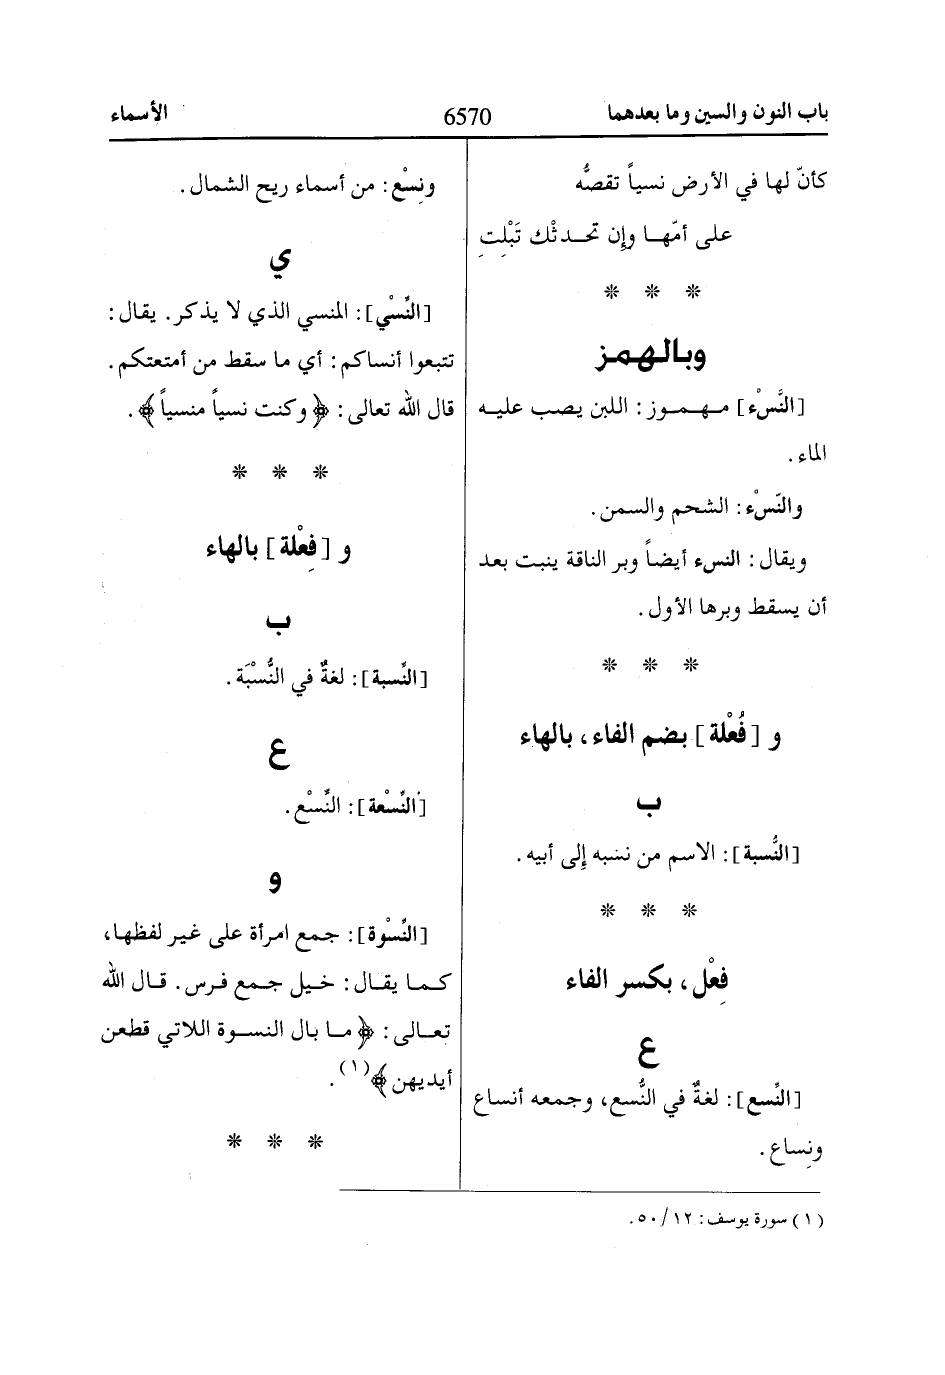 باب النون والسين وما بعدهما
6570
الأسماء
كأنّ لها في الأرض نسياً تقصُّه
على أمّها وإِن تحدثْك تَبْلِتِ
* * *
وبالهمز
[النَّسْء] مهموز: اللبن يصب عليه
الماء.
والنَّسْء: الشحم والسمن.
ويقال: النسء أيضاً وبر الناقة ينبت بعد
أن يسقط وبرها الأول.
* * *
و [فُعْلة] بضم الفاء، بالهاء
ب
[النُّسبة]: الاسم من نسبه إِلى أبيه.
* * *
فِعْل، بكسر الفاء
ع
[النِّسع]: لغةٌ في النُّسع، وجمعه أنساع
ونِساع.
ونِسْع: من أسماء ريح الشمال.
ي
[النِّسْي]: المنسي الذي لا يذكر. يقال:
تتبعوا أنساكم: أي ما سقط من أمتعتكم.
قال الله تعالى: ﴿وكنت نسياً منسياً﴾.
* * *
و [فِعْلة] بالهاء
ب
[النِّسبة]: لغةٌ في النُّسْبَة.
ع
[النِّسْعة]: النِّسْع.
و
[النِّسْوة]: جمع امرأة على غير لفظها،
كما يقال: خيل جمع فرس. قال الله
تعالى: ﴿ما بال النسوة اللاتي قطعن
أيديهن﴾(١).
* * *
(١) سورة يوسف: ١٢/٥٠.